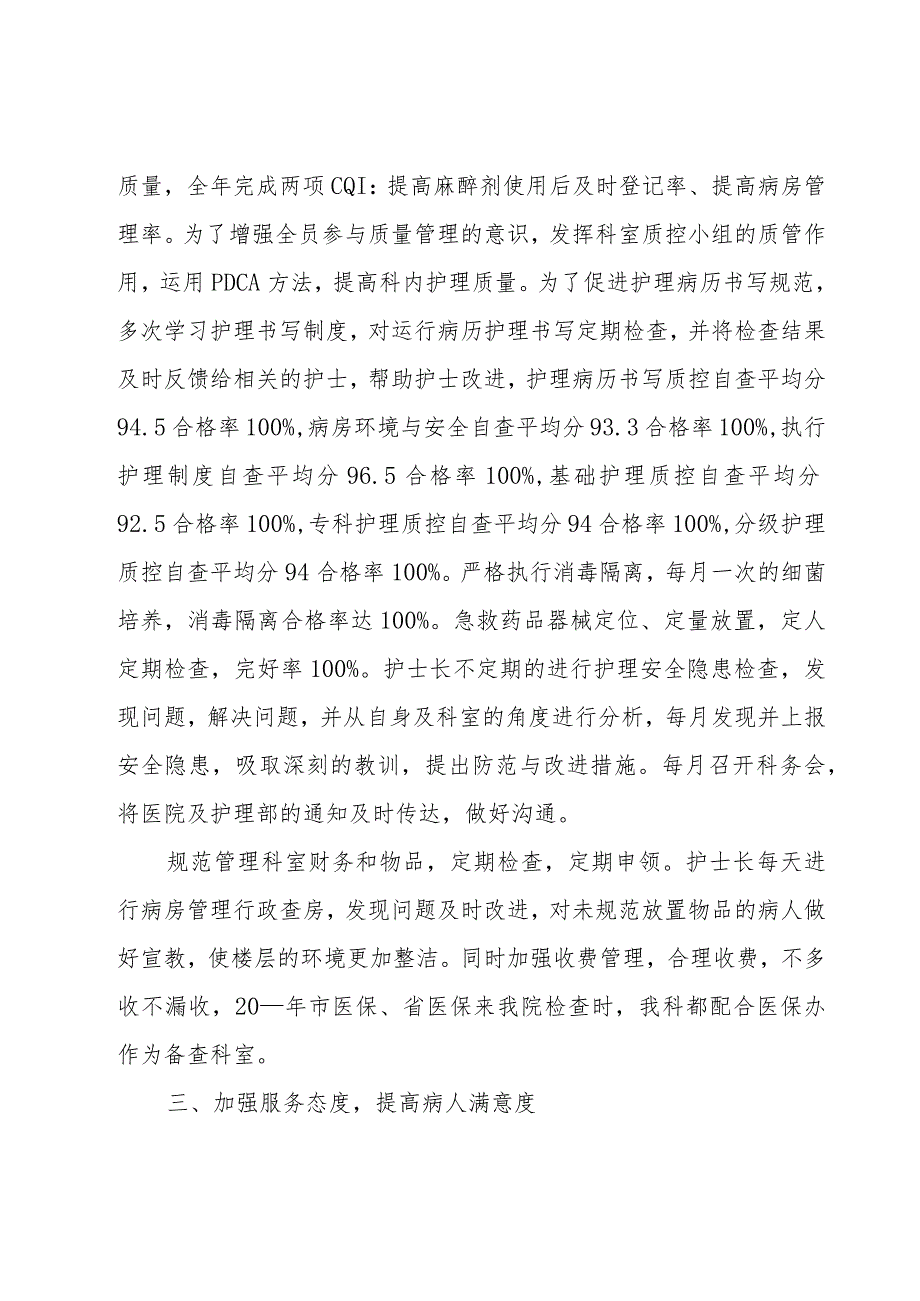 质量，全年完成两项 CQI：提高麻醉剂使用后及时登记率、提高病房管
理率。为了增强全员参与质量管理的意识，发挥科室质控小组的质管作
用，运用 PDCA 方法，提高科内护理质量。为了促进护理病历书写规范，
多次学习护理书写制度，对运行病历护理书写定期检查，并将检查结果
及时反馈给相关的护士，帮助护士改进，护理病历书写质控自查平均分
94.5 合格率 100%,病房环境与安全自查平均分 93.3 合格率 100%,执行
护理制度自查平均分 96.5 合格率 100%,基础护理质控自查平均分
92.5 合格率 100%,专科护理质控自查平均分 94 合格率 100%,分级护理
质控自查平均分 94 合格率 100%。严格执行消毒隔离，每月一次的细菌
培养，消毒隔离合格率达 100%。急救药品器械定位、定量放置，定人
定期检查，完好率 100%。护士长不定期的进行护理安全隐患检查，发
现问题，解决问题，并从自身及科室的角度进行分析，每月发现并上报
安全隐患，吸取深刻的教训，提出防范与改进措施。每月召开科务会，
将医院及护理部的通知及时传达，做好沟通。
规范管理科室财务和物品，定期检查，定期申领。护士长每天进
行病房管理行政查房，发现问题及时改进，对未规范放置物品的病人做
好宣教，使楼层的环境更加整洁。同时加强收费管理，合理收费，不多
收不漏收，20—年市医保、省医保来我院检查时，我科都配合医保办
作为备查科室。
三、加强服务态度，提高病人满意度